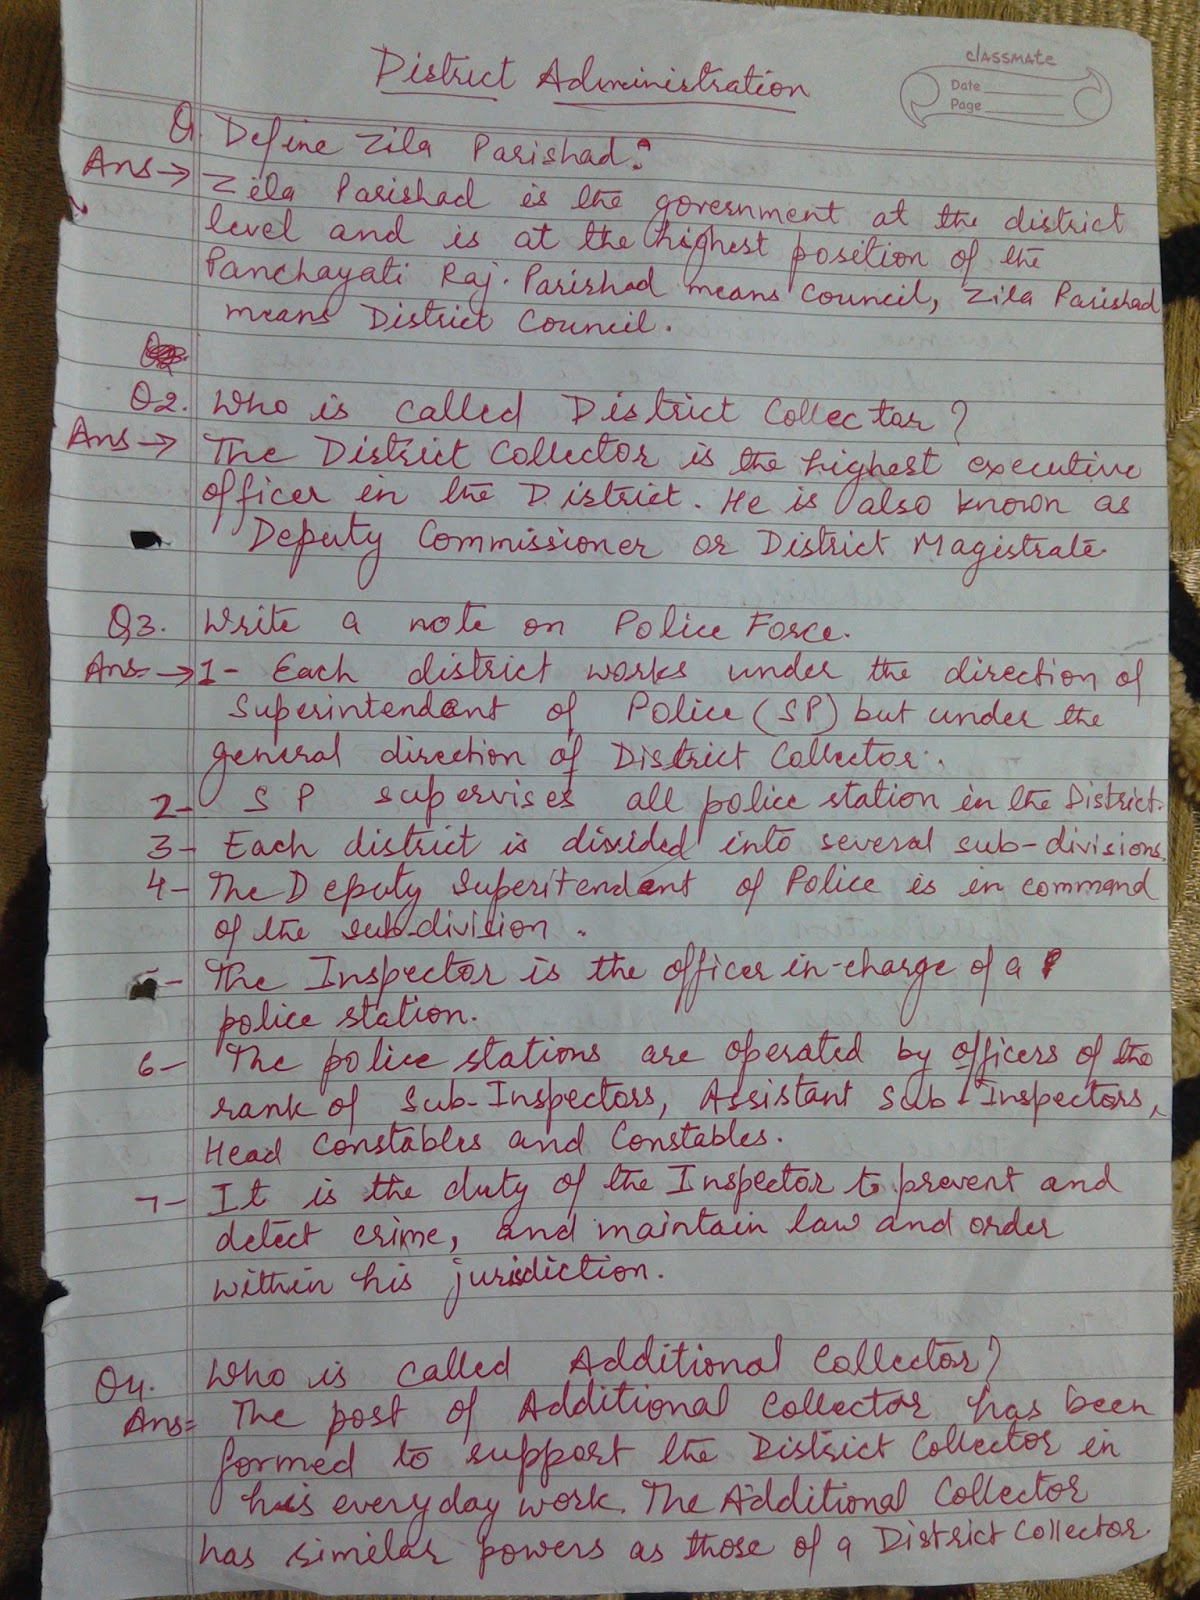 District Administration
classmate
Date
Page
Q1. Define Zila Parishad?
Ans → Zila Parishad is the government at the district
level and is at the highest position of the
Panchayati Raj. Parishad means Council, Zila Parishad
means District Council.
Q2. Who is called District Collector?
Ans → The District Collector is the highest executive
officer in the District. He is also known as
Deputy Commissioner or District Magistrate.
Q3. Write a note on Police Force.
Ans- → 1- Each district works under the direction of
Superintendent of Police (SP) but under the
general direction of District Collector.
2- SP supervises all police station in the District.
3- Each district is divided into several sub-divisions.
4- The Deputy Superitendent of Police is in command
of the sub-division.
5- The Inspector is the officer in-charge of a
police station.
6- The police stations are operated by officers of the
rank of Sub-Inspectors, Assistant Sub-Inspectors,
Head Constables and Constables.
7- It is the duty of the Inspector to prevent and
detect crime, and maintain law and order
within his jurisdiction.
Q4. Who is called Additional Collector?
Ans= The post of Additional Collector has been
formed to support the District Collector in
his everyday work. The Additional Collector
has similar powers as those of a District Collector.